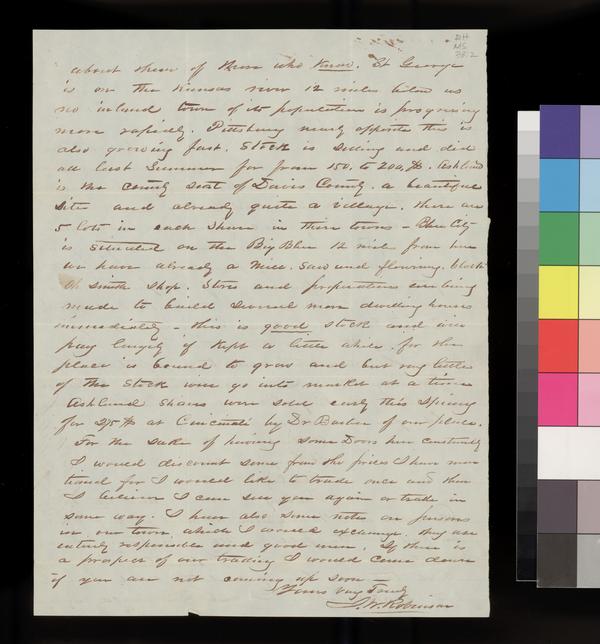 DH
MS
38.2
about them of those who know. St George
is on the Kansas river 12 miles below us
no inland town of its population is progressing
more rapidly. Pittsburg nearly opposite this is
also growing fast. Stock is selling and did
all last Summer for from 150, to 200,$. Ashland
is the County seat of Davis County. a beautiful
site and already quite a village. there are
5 lots in each share in these towns – Blue City
is situated on the Big Blue 12 mile from here
we have already a Mill. saw and flowring, black
smith shop. Store and preparations are being
made to build several more dwelling houses
immediately – this is good stock and will
pay largely if kept a little while. for the
place is bound to grow and but very little
of the stock will go into market at a time
Ashland shares were sold early this Spring
for 275 $ at Cincinati by Dr of our place.
For the sake of having some Doors here constantly
I would discount some from the prices I have men
tioned for I would like to trade once and then
I believe I can see you again or trade in
same way. I have also some notes on persons
in our town which I would exchange. they are
entirely responsible and good men. If there is
a prospect of our trading I would come down
if you are not coming up soon –
Yours Very Truly
S. W. Robinson